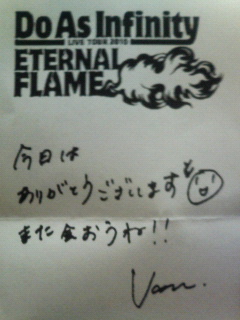 Do As Infinity
LIVE TOUR 2010
ETERNAL
FLAME
今日は
ありがとうございます
また会おうね!!
Van.